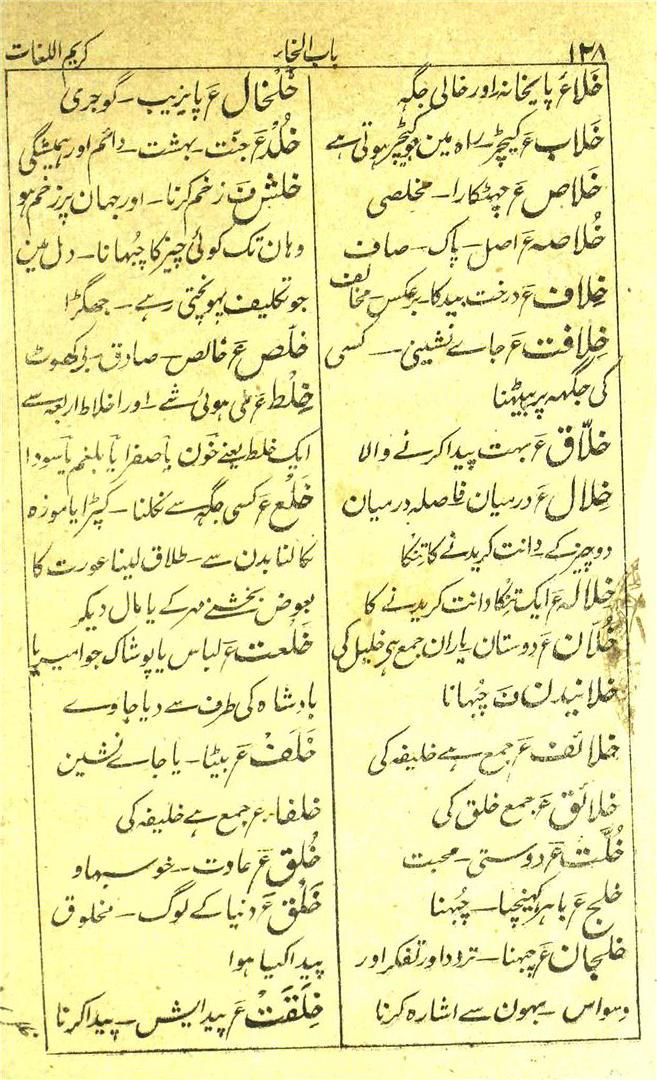 ۱۲۸ باب الخاء کریم اللغات
خَلاءَ پایخانہ اور خالی جگہ
خَلاب ع کیچڑ۔ راہ مین جو کیچڑ ہوتی ہے
خَلاص ع چھٹکارا۔ مخلصی
خُلاصہ ع اصل۔ پاک۔ صاف
خِلاف ع درخت بید کا۔ برعکس۔ مخالف
خِلافت ع جاے نشینی۔ کسی
کی جگہہ پر بیٹھنا
خلّاق ع بہت پیدا کرنے والا
خِلال ع درمیان فاصلہ درمیان
دو چیز کے۔ دانت کریدنے کا تنکا
خلالہ ع ایک تنکا دانت کریدنے کا
خُلّان ع دوستان یاران جمع ہی خلیل کی
خلانیدن ف چُبہانا
خلائف ع جمع ہے خلیفہ کی
خلائق ع جمع خلق کی
خُلّت ع دوستی۔ محبت
خلج ع باہر کھینچنا۔ چُبہنا
خلجان ع چبہنا۔ تردد اور تفکر اور
وسواس۔ بہون سے اشارہ کرنا
خَلْخال ع پایزیب۔ گوجری
خُلْد ع جنّت۔ بہشت۔ دائم اور ہمیشگی
خلش ف زخم کرنا۔ اور جہان پر زخم ہو
وہان تک کوئی چیز کا چبہانا۔ دل مین
جو تکلیف پہونچتی رہے۔ جھگڑا
خلص ع خالص۔ صادق۔ بی کھوٹ
خِلط ع ملی ہوئی شے۔ اور اخلاط اربعہ سے
ایک خلط یعنے خون یا صفرا یا بلغم یا سودا
خَلْع ع کسی جگہ سے نکلنا۔ کپڑا یا موزہ
نکالنا بدن سے۔ طلاق لینا عورت کا
بعوض بخشنے مہر کے یا مال دیگر
خَلعت ع لباس یا پوشاک جو امیر یا
بادشاہ کی طرف سے دیا جاوے
خَلَفْ ع بیٹا۔ یا جاے نشین
خلفاء ع جمع ہے خلیفہ کی
خُلق ع عادت۔ خو سبہاو
خَلْق ع دنیا کے لوگ۔ مخلوق
پیدا کیا ہوا
خِلقَتْ ع پیدایش۔ پیدا کرنا